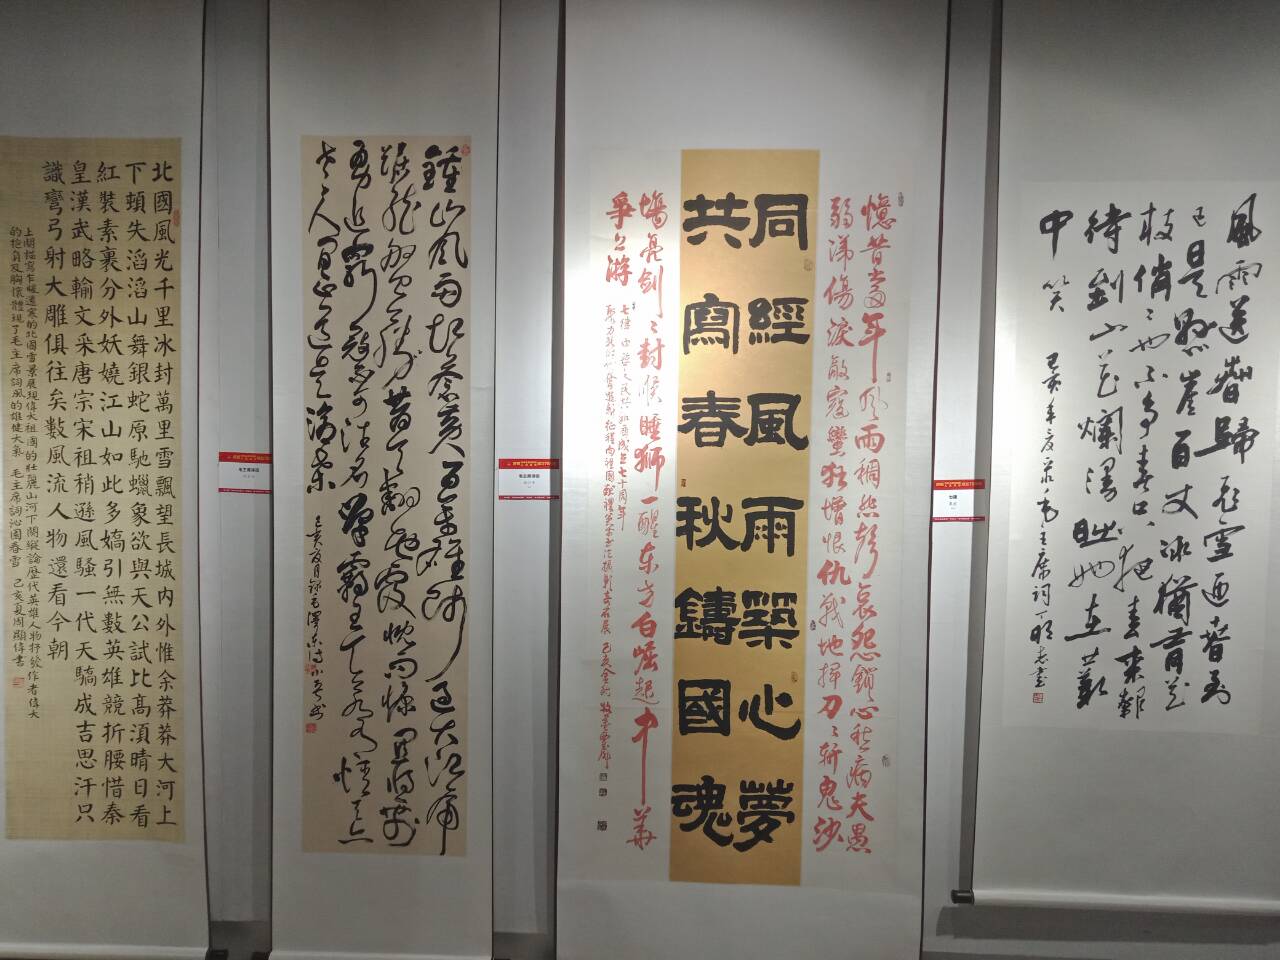 風雨送春歸飛雪迎春到
已是懸崖百丈冰猶有花
枝俏〻也不争春只把春来報
待到山花爛漫時她在叢
中笑 己亥年夏录毛主席词丁明志書
七律
憶昔當年風雨稠怨聲哀怨鎖心愁病夫愚
弱涕傷淚敵寇蠻狂增恨仇戰地揮刀〻斬鬼沙
同經風雨築心夢
共寫春秋鑄國魂
場亮劍〻封喉睡獅一醒东方白崛起中華
爭上游
鍾山風雨起蒼黃百萬雄師過大江虎
踞龍盤今勝昔天翻地覆慨而慷宜將剩
勇追窮寇不可沽名學霸王天若有情天亦
老人間正道是滄桑 己亥夏月錄毛澤东诗
北國風光千里冰封萬里雪飄望長城内外惟余莽莽大河上
下頓失滔滔山舞銀蛇原馳蠟象欲與天公試比高須晴日看
紅裝素裹分外妖嬈江山如此多嬌引無數英雄競折腰惜秦
皇漢武略輸文采唐宗宋祖稍遜風騷一代天驕成吉思汗只
識彎弓射大雕俱往矣數風流人物還看今朝
上闋描寫乍暖還寒的北國雪景展現偉大祖國的壯麗山河下闋縱論歷代英雄人物抒發作者偉大
的抱負及胸懷體現了毛主席詞風的雄健大氣 毛主席詞沁園春雪 己亥夏周顯偉書